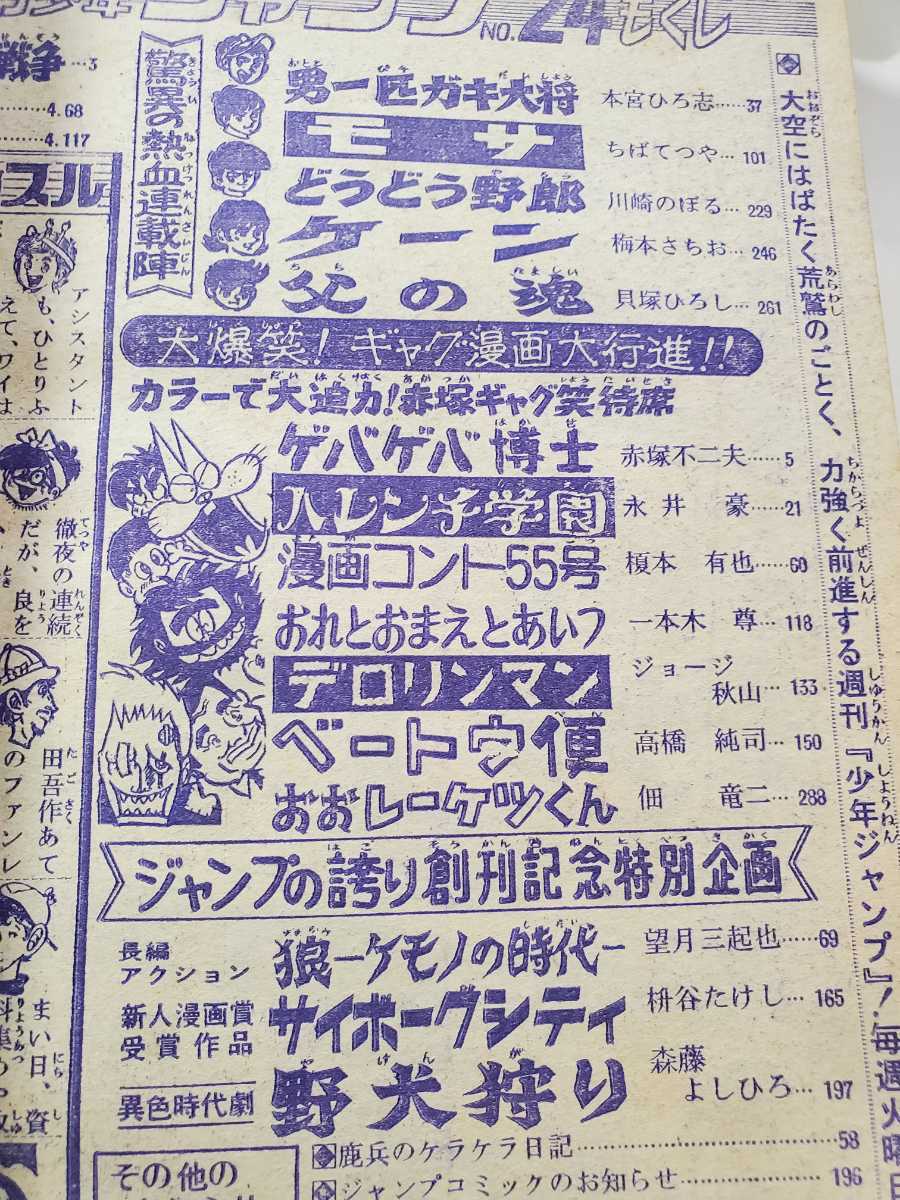 少年ジャンプ NO.24もくじ
大空にはばたく荒鷲のごとく、力強く前進する週刊『少年ジャンプ』!毎週火曜日
驚異の熱血連載陣
男一匹ガキ大将 本宮ひろ志……37
モサ ちばてつや…101
どうどう野郎 川崎のぼる…229
ケーン 梅本さちお…246
父の魂 貝塚ひろし…261
大爆笑!ギャグ漫画大行進!!
カラーで大迫力!赤塚ギャグ笑待席
ゲバゲバ博士 赤塚不二夫……5
ハレンチ学園 永井豪……21
漫画コント55号 榎本有也……60
おれとおまえとあいつ 一本木尊…118
デロリンマン ジョージ秋山…133
ベートウ便 高橋純司…150
おおレーケツくん 佃竜二…288
ジャンプの誇り創刊記念特別企画
長編アクション 狼―ケモノの時代― 望月三起也……69
新人漫画賞受賞作品 サイボーグシティ 枡谷たけし…165
異色時代劇 野犬狩り 森藤よしひろ…197
鹿兵のケラケラ日記……58
ジャンプコミックのお知らせ……196
その他の
戦争…3
……4.68
……4.117
スル
アシスタント
も、ひとりふ
えて、ワイは
徹夜の連続
だが、良を
田吾作あて
のファンレ
まい日、資